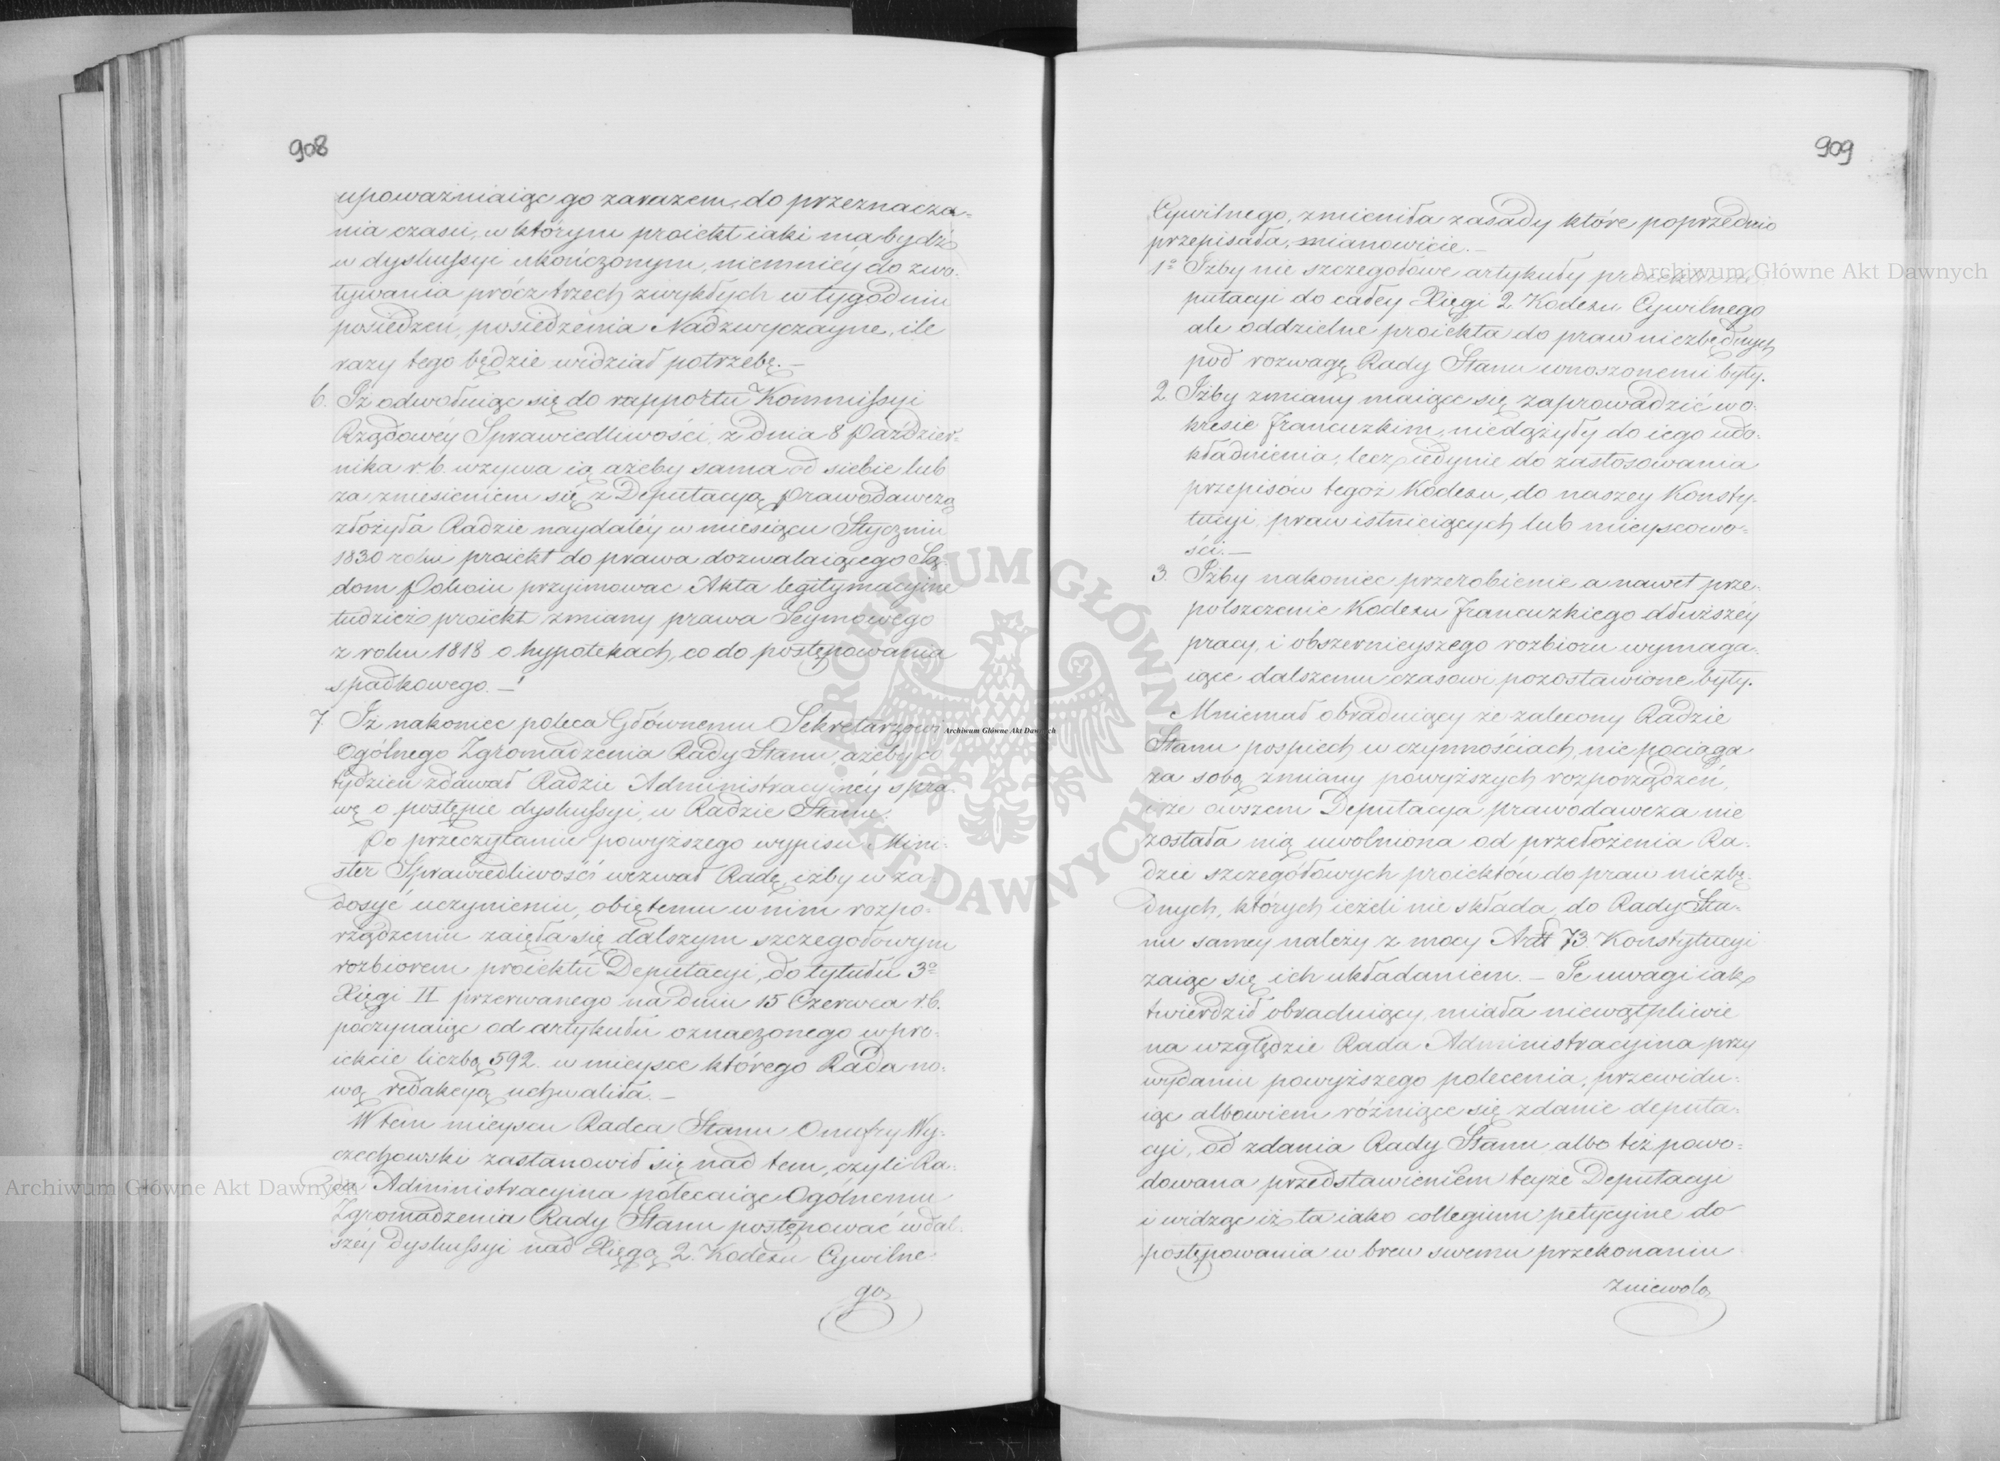 908
upoważniaiąc go zarazem, do przeznacza-
nia czasu, w którym proiekt iaki ma bydź
w dyskussyi ukończonym, niemniéy do zwo-
ływania prócz trzech zwykłych w tygodniu
posiedzeń, posiedzenia Nadzwyczayne, ile
razy tego będzie widział potrzebę. —
6. Iż odwołuiąc się do rapportu Kommissyi
Rządowéy Sprawiedliwości, z dnia 8 Paździer-
nika r. b. wzywa ią, ażeby sama od siebie lub
za zniesieniem się z Deputacyą Prawodawczą
złożyła Radzie naydaléy w miesiącu Styczniu
1830 roku proiekt do prawa dozwalaiącego Są-
dom Pokoiu przyimować Akta legitymacyine
tudzież proiekt zmiany prawa Seymowego
z roku 1818 o hypotekach, co do postępowania
spadkowego. —
7. Iż nakoniec poleca Głównemu Sekretarzowi
Ogólnego Zgromadzenia Rady Stanu, ażeby co
tydzień zdawał Radzie Administracyinéy spra-
wę o postępie dyskussyi, w Radzie Stanu.
Po przeczytaniu powyższego wypisu Mini-
ster Sprawiedliwości wezwał Radę, iżby w za-
dosyć uczynieniu, obiętemu w nim rozpo-
rządzeniu zaięła się dalszym szczegółowym
rozbiorem proiektu Deputacyi, do tytułu 3o
Xięgi II przerwanego na dniu 15 Czerwca r. b.
poczynaiąc od artykułu oznaczonego w pro-
iekcie liczbą 592. w mieysce którego Rada no-
wą redakcyą uchwaliła. —
W tem mieyscu Radca Stanu Onufry Wy-
czechowski zastanowił się nad tem, czyli Ra-
da Administracyina polecaiąc Ogólnemu
Zgromadzeniu Rady Stanu postępować w dal-
széy dyskussyi nad Xięgą 2. Kodexu Cywilne-
go,
909
Cywilnego, zmieniła zasady które poprzednio
przepisała, mianowicie. —
1o Iżby nie szczegółowe artykuły proiektu De-
putacyi do całey Xięgi 2 Kodexu Cywilnego
ale oddzielne proiekta do praw niezbędnych
pod rozwagę Rady Stanu wnoszonemi były.
2. Iżby zmiany maiące się zaprowadzić w o-
kresie francuzkim, niedążyły do iego udo-
kładnienia, lecz iedynie do zastosowania
przepisów tegoż Kodexu, do naszey Konsty-
tucyi, praw istnieiących lub mieyscowo-
ści. —
3. Iżby nakoniec przerobienie a nawet prze-
polszczenie Kodexu francuzkiego dłuższéy
pracy, i obszernieyszego rozbioru wymaga-
iące dalszemu czasowi pozostawione były.
Mniemał obraduiący że zalecony Radzie
Stanu pospiech w czynnościach, nie pociąga
za sobą zmiany powyższych rozporządzeń,
i że owszem Deputacya prawodawcza nie
została nią uwolniona od przełożenia Ra-
dzie szczegółowych proiektów do praw niezbę-
dnych, których ieżeli nie składa, do Rady Sta-
nu samey należy z mocy Art 73. Konstytucyi
zaiąć się ich układaniem. — Te uwagi iak
twierdził obraduiący, miała niewątpliwie
na względzie Rada Administracyina przy
wydaniu powyższego polecenia, przewidu-
iąc albowiem różniące się zdanie deputa-
cyi, od zdania Rady Stanu, albo też powo-
dowana przedstawieniem teyże Deputacyi
i widząc iż ta iako collegium petycyine do
postępowania w brew swemu przekonaniu
zniewolo,
Archiwum Główne Akt Dawnych
Archiwum Główne Akt Dawnych
Archiwum Główne Akt Dawnych
ARCHIWUM GŁÓWNE AKT DAWNYCH